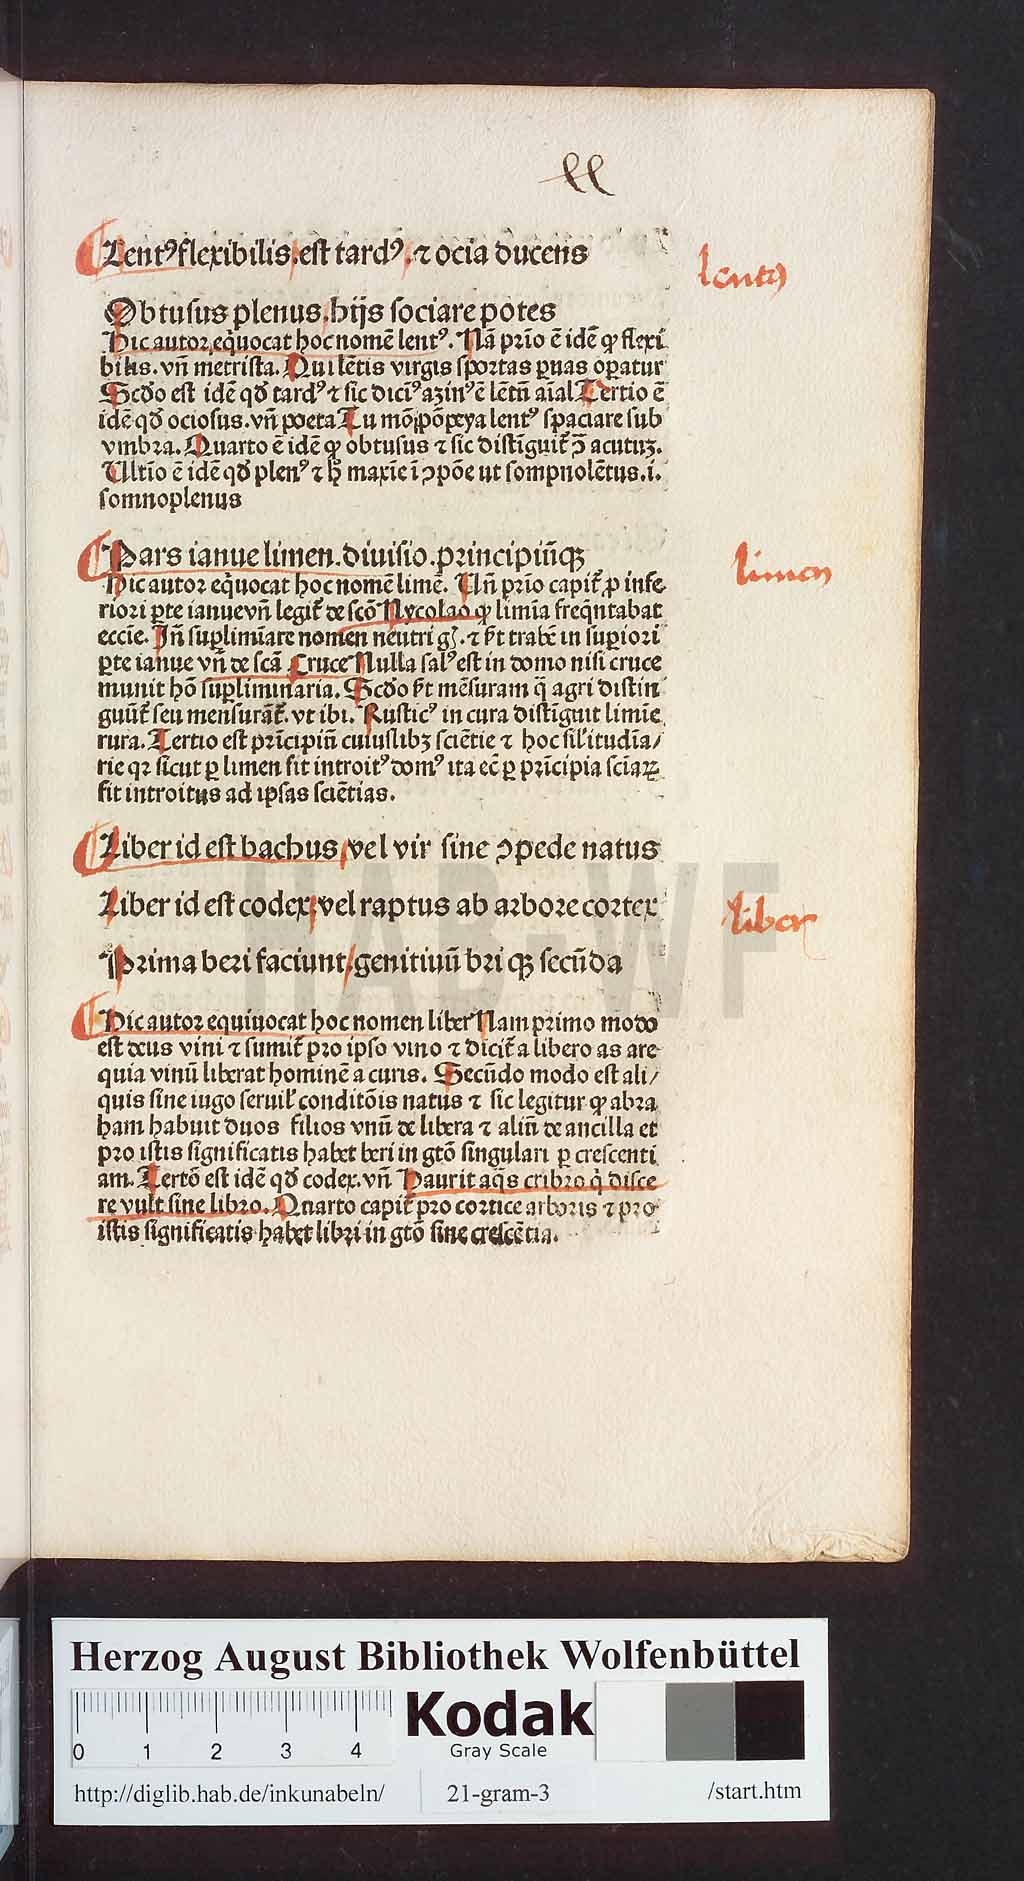 ll
Lentꝰ flexibilis. est tardꝰ. ⁊ ocia ducens
lentꝰ
Obtusus plenus. hijs sociare potes
Hic autor eq̇uocat hoc nomē lentꝰ. Nā prīo ē idē ꝙ flexi
bilis. vn̄ metrista. Qui lētis virgis sportas ꝑuas oꝑatur
Scd̄o est idē qd̄ tardꝰ ⁊ sic diciꝰ azinꝰ ē letn̄ aīal Tertio ē
idē qd̄ ociosus. vn̄ poeta Tu mō pōpeya lentꝰ spaciare sub
vmbra. Quarto ē idē ꝙ obtusus ⁊ sic distīguit̄ ↄ̄ acutuꝫ.
Ultīo ē idē qd̄ plenꝰ ⁊ hꝫ maxīe ī ↄpōe ut sompnolētus .i.
somnoplenus
Pars ianue limen. diuisio. principiūqꝫ
limen
Hic autor eq̇uocat hoc nomē limē. Un̄ prīo capit̄ ꝓ infe
riori ꝑte ianue vn̄ legit̄ de scō Nycolao ꝙ limīa freq̄ntabat
eccīe. Jn̄ suꝑlimīare nomen neutri gꝭ. ⁊ ꝓt trabē in suꝑiori
ꝑte ianue vn̄ de scā Cruce Nulla salꝰ est in domo nisi cruce
munit hō suꝑliminaria. Scd̄o ꝓt mēsuram q̄ agri distin
guūt̄ seu mensurāt̄. vt ibi. Rusticꝰ in cura distīguit limīe
rura. Tertio est prīcipiū cuiuslibꝫ sciētie ⁊ hoc sil'itudīa/
rie qꝛ sicut ꝑ limen fit introitꝰ domꝰ ita ec̄ ꝑ prīcipia sciāꝝ
fit introitus ad ipsas sciētias.
Liber id est bachus vel vir sine ↄpede natus
Liber id est codex vel raptus ab arbore cortex
liber
Prima beri faciunt/ genitiuū bri qꝫ secūda
Hic autor equiuocat hoc nomen liber Nam primo modo
est deus vini ⁊ sumit̄ pro ipso vino ⁊ dicit̄ a libero as are
quia vinū liberat hominē a curis. Secūdo modo est ali/
quis sine iugo seruil' conditōis natus ⁊ sic legitur ꝙ abra
ham habuit duos filios vnū de libera ⁊ aliū de ancilla et
pro istis significatis habet beri in gtō singulari ꝑ crescenti
am. Tertō est idē qd̄ codex. vn̄ Haurit aq̄s cribro q̇ disce
re vult sine libro. Quarto capit̄ pro cortice arboris ⁊ pro
istis significatis habet libri in gtō sine crescētia.
HAB-WF
Herzog August Bibliothek Wolfenbüttel
0 1 2 3 4
Kodak
Gray Scale
http://diglib.hab.de/inkunabeln/ 21-gram-3 /start.htm